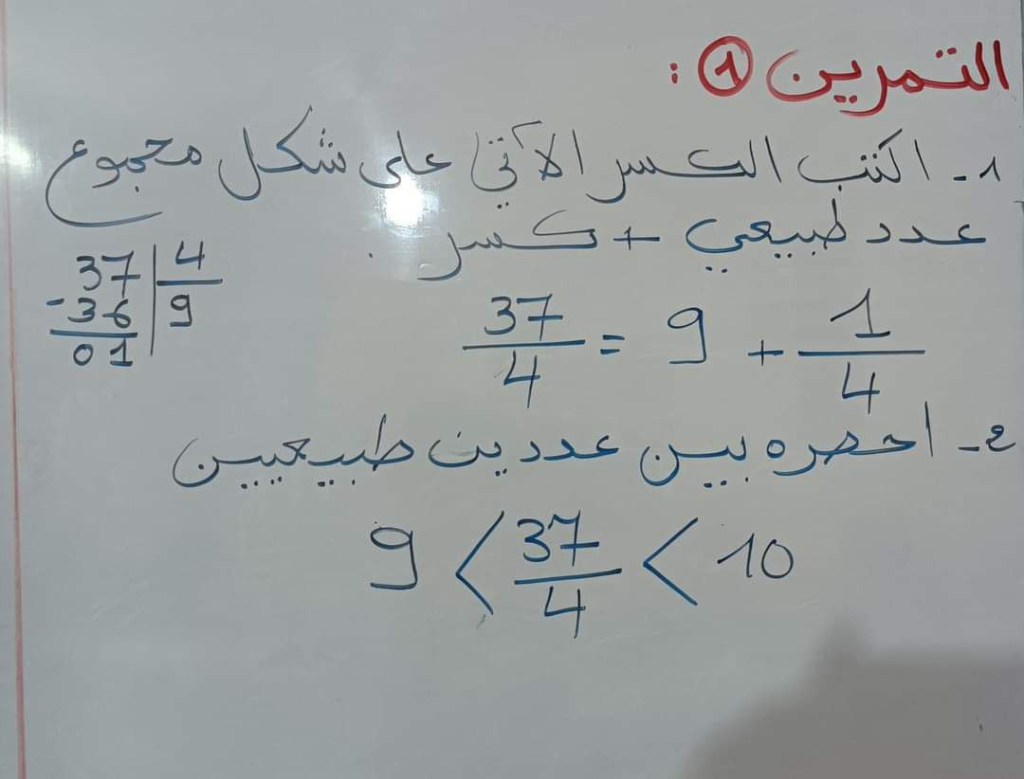 التمرين ①:
1- اكتب الكسر الآتي على شكل مجموع
عدد طبيعي + كسر.
37 | 4
-36 | 9
01
37/4 = 9 + 1/4
2- احصره بين عددين طبيعيين
9 < 37/4 < 10